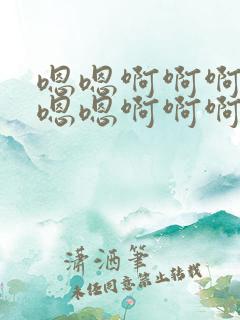 嗯嗯啊啊啊
嗯嗯啊啊啊
潇洒笔
未经同意禁止转载